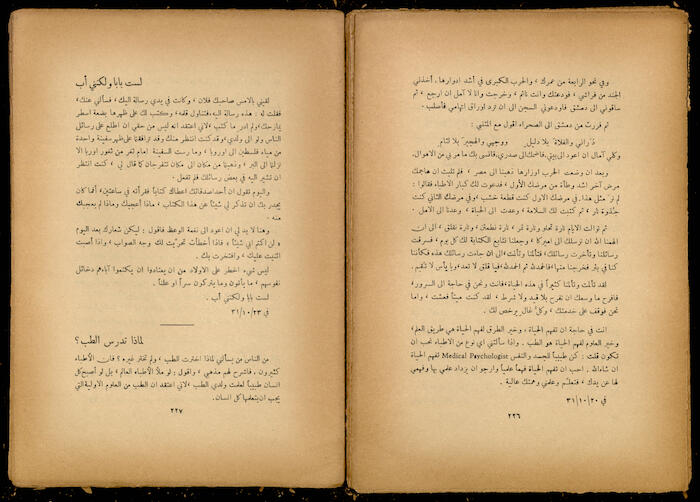 وفي نحو الرابعة من عمرك ، والحرب الكبرى في أشد ادوارها، أخذني
الجند من فراشي ، فودعتك وانت نائم ، وخرجت وانا لا آمل ان ارجع ، ثم
ساقوني الى دمشق فاودعوني السجن الى ان ترد اوراق اتهامي فأصلب.
ثم فررت من دمشق الى الصحراء أقول مع المتنبي :
ذراني والفلاة بلا دليل ووجهي والهجير بلا لثام
وكلي آمال ان اعود الى بيتي فاضمك الى صدري، فانسى بك ما مر بي من الاهوال.
وبعد ان وضعت الحرب اوزارها ذهبنا الى مصر ، فلم تلبث ان هاجمك
مرض آخر اشد وطأة من مرضك الأول ، فدعوت لك كبار الاطباء فقالوا :
لم نر مثل هذا. في مرضك الاول كنت قطعة خشب ، وفي مرضك الثاني كنت
جذوة نار ، ثم كتبت لك السلامة ، وعدت الى الحياة ، وعدنا الى الامل .
ثم توالت الايام تارة تمر وتارة تمر ، تارة نطمئن ، وتارة نقلق ، الى ان
الهمنا الله ان نرسلك الى اميركا ، وجعلنا نتابع الكتابة لك كل يوم ، فسرقت
رسائلنا وتأخرت رسائلك ، فتألمنا وتألمت، الى ان جاءت رسائلك هذه فكأننا
كنا في بئر فخرجنا منها، فالحمد لله ثم الحمد لله، فيا قلق لا تعد، ويا يأس لا تقم.
لقد تألمت وتألمنا كثيراً في هذه الحياة، فانت ونحن في حاجة الى السرور،
فافرح ما وسعك ان تفرح بلا قيد ولا شرط ، لقد كنت ميتاً فعشت ، واما
نحن فوقف على خدمتك ، وكل غال يرخص لك .
انت في حاجة ان تفهم الحياة ، وخير الطرق لفهم الحياة هي طريق العلم،
وخير العلوم لفهم الحياة هو الطب . واذا سألتني أي نوع من الاطباء تحب ان
تكون قلت : كن طبيباً للجسد والنفس Medical Psychologist تفهم الحياة
ان شاء الله . احب ان تفهم الحياة فهماً علمياً وارجو ان يزداد علمي بها وفهمي
لها عن يدك ، فتعلم وعلمني وهمتك عالية .
في ٢٠/١٠/٣١
٢٢٦
لست بابا ولكنني أب
لقيني بالامس صاحبك فلان ، وكانت في يدي رسالة اليك ، فسألني عنك،
فقلت له : هذه رسالة اليه ، فتناول قلمه ، وكتب لك على ظهرها بضعة اسطر
يمازحك، ولم ادر ما كتب ، لاني اعتقد انه ليس من حقي ان اطلع على رسائل
الناس ولو الى ولدي، وقد كنت انتظر منك وقد ترافقتما على ظهر سفينة واحدة
من ميناء فلسطين الى اوروبا ، وما رست السفينة امام ثغر من ثغور اوربا الا
نزلتما الى البر ، وذهبتما من مكان الى مكان تتفرجان كما قال لي ، كنت انتظر
ان تشير اليه في بعض رسائلك فلم تفعل .
واليوم تقول ان احد اصدقائك اعطاك كتاباً فقرأته في ساعتين، أفما كان
يجدر بك ان تذكر لي شيئاً عن هذا الكتاب ، ماذا أعجبك وماذا لم يعجبك
منه .
وهنا لا بد لي ان اعود الى نغمة الوعظ فاقول : ليكن شعارك بعد اليوم
« لن اكتم ابي شيئاً » فاذا أخطأت تحريت لك وجه الصواب ، واذا أصبت
اثنيت عليك ، وافتخرت بك .
ليس شيء اخطر على الاولاد من ان يعتادوا ان يكتموا آباءهم دخائل
نفوسهم ، ما يأتون وما يتركون سراً او علناً .
لست بابا ولكنني أب .
في ٢٣/١٠/٣١
لماذا تدرس الطب؟
من الناس من يسألني لماذا اخترت الطب ، ولم تختر غيره ؟ فان الأطباء
كثيرون . فاشرح لهم مذهبي ، واقول : لو ملأ الأطباء العالم ، بل لو أصبح كل
انسان طبيباً لعلمت ولدي الطب ، لاني اعتقد ان الطب من العلوم الاولية التي
يجب ان يتعلمها كل انسان.
٢٢٧